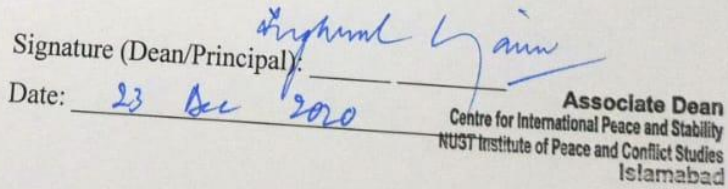 Signature (Dean/Principal):
Date: 23 Dec 2020
Associate Dean
Centre for International Peace and Stability
NUST Institute of Peace and Conflict Studies
Islamabad